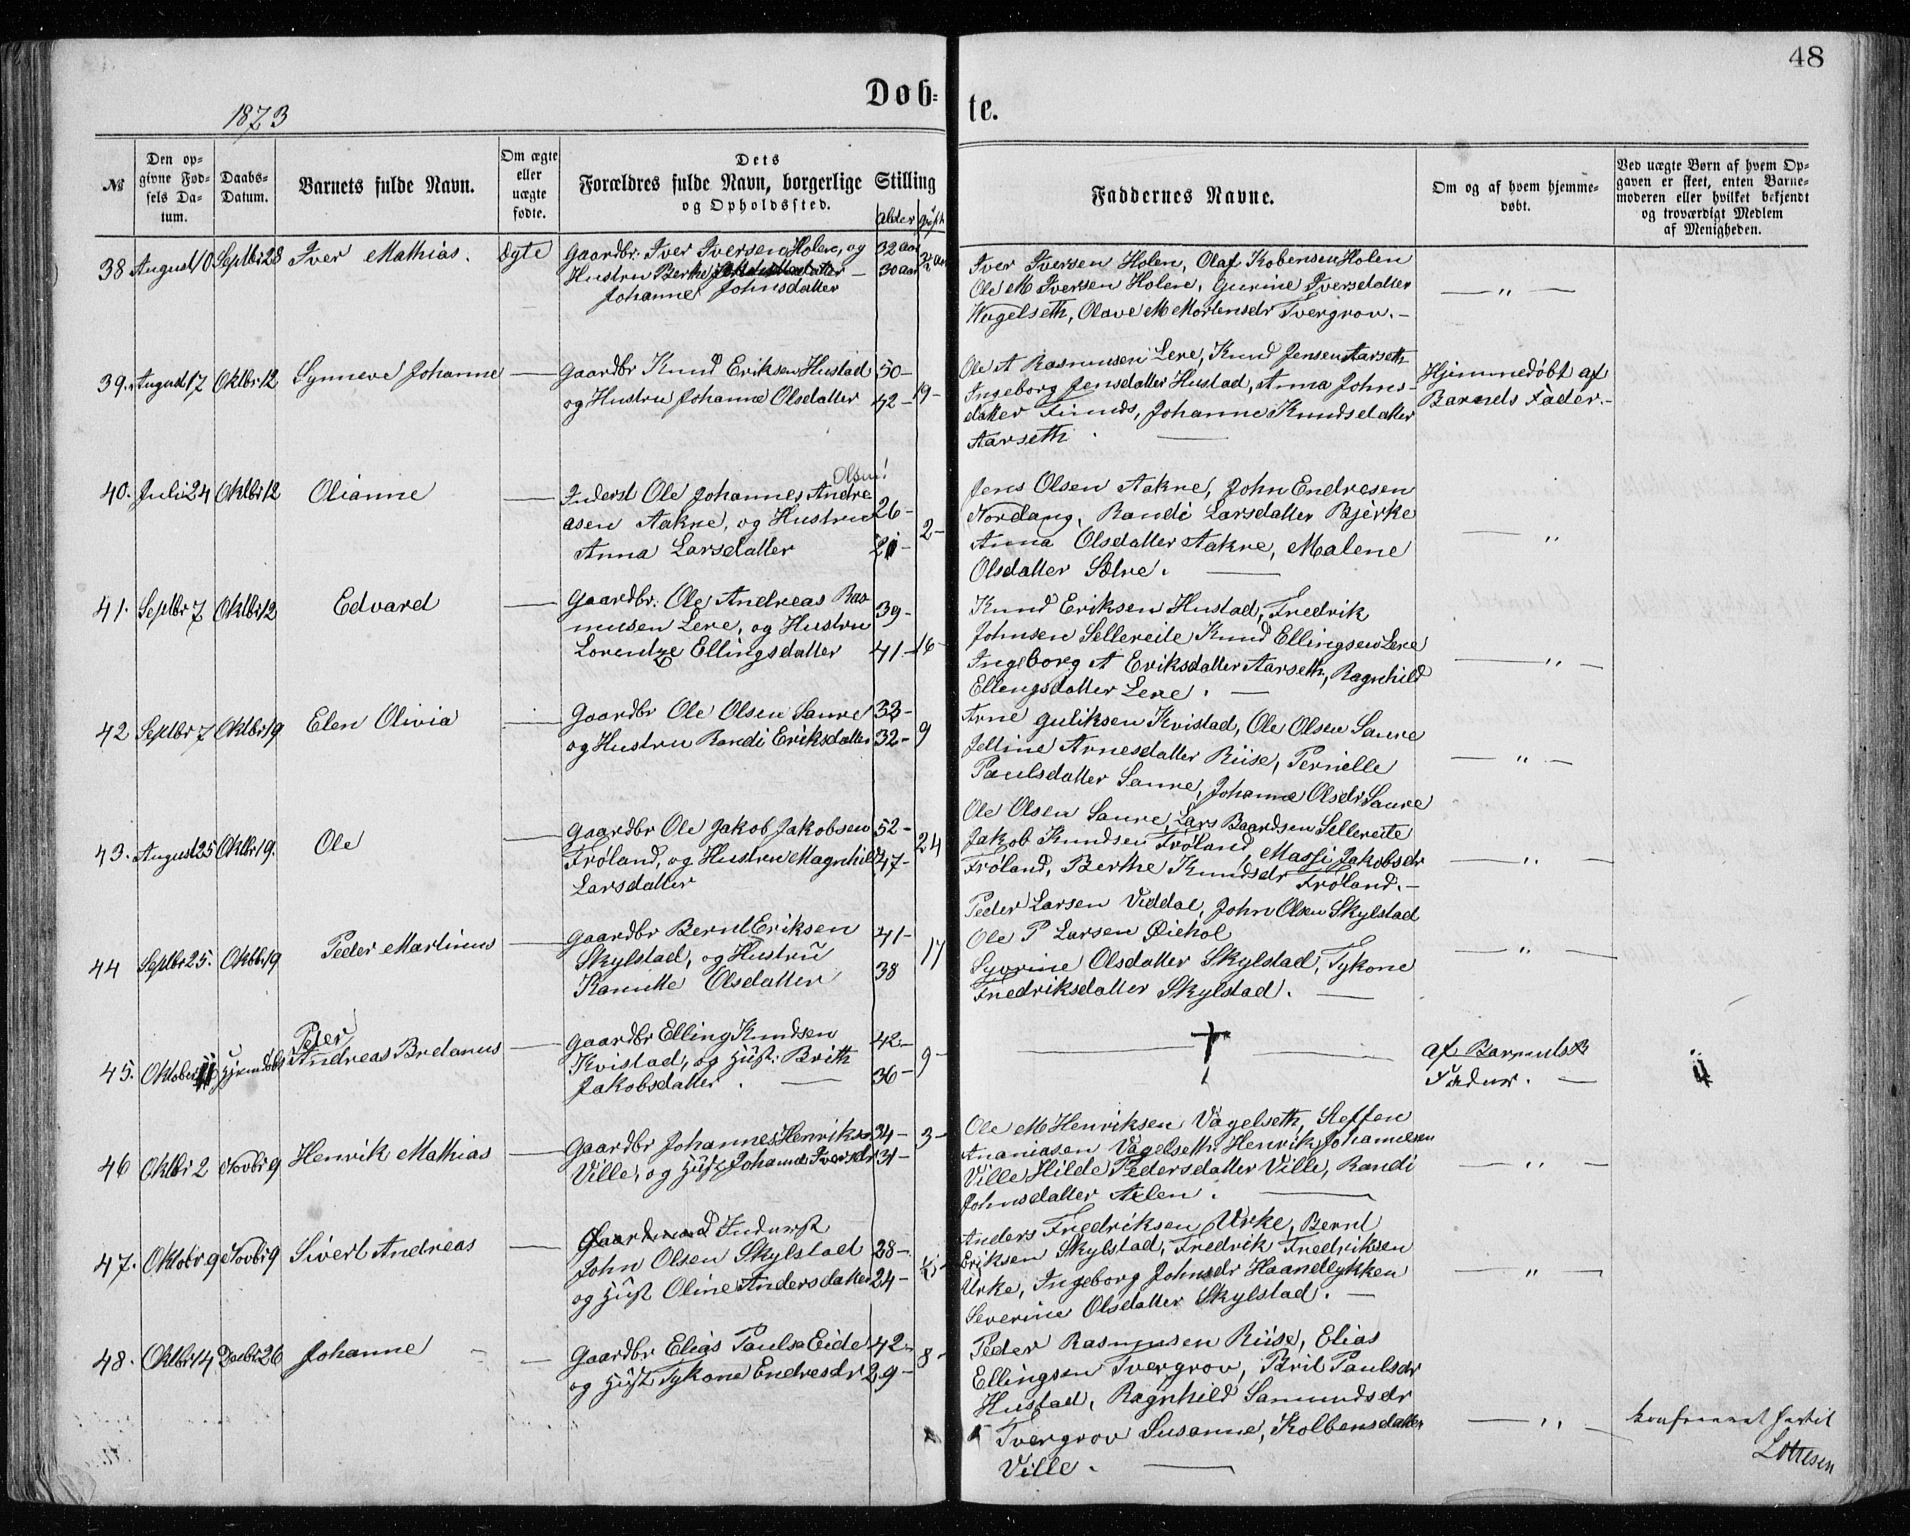 48
Døb-
te.
1873
№
Den op-
givne Fød-
sels Da-
tum.
Daabs-
Datum.
Barnets fulde Navn.
Om ægte
eller
uægte
fødte.
Dets
Forældres fulde Navn, borgerlige Stilling
og Opholdssted.
Alder
Gift
Faddernes Navne.
Om og af hvem hjemme-
døbt.
Ved uægte Børn af hvem Op-
gaven er skeet, enten Barne-
moderen eller hvilket bekjendt
og troværdigt Medlem
af Menigheden.
38 August 10. Septbr 28 Iver Mathias. Ægte Gaardbr: Iver Iversen Holen, og 32 aar
Hustru Berthe — 30 aar
Johanne Johnsdatter
Iver Iversen Holen, Olaf Kobensen Holen
Ole M Iversen Holen, Gurine Iversdatter — „ —
Wugelseth, Olave M Mortensdr Tvergrov. —
39. August 17 Oktbr 12 Synneve Johanne — Gaardbr Knud Eriksen Hustad 50 —
og Hustru Johanne Olsdatter 42 — 19 —
Ole A Rasmusen Lere, Knud Jensen Aarseth
Ingeborg Jensdatter Hustad, Anna Johns- Hjemmedøbt af
datter Finnds, Johanne Knudsdatter Barnets Fader. —
Aarseth. —
40. Juli 24 Oktbr 12 Olianne — Inderst Ole Johannes Andre Olsen! 26 —
asen Aakre, og Hustru 2 —
Anna Larsdatter 21 —
Jens Olsen Aakre, John Endresen
Nordang, Randi Larsdatter Bjerke
Anna Olsdatter Aakre, Malene — „
Olsdatter Sætre. —
41. Septbr 7 Oktbr 12 Edvard — Gaardbr: Ole Andreas Ras- 39 —
musen Lere, og Hustru
Lorentze Ellingsdatter 41 — 16 —
Knud Eriksen Hustad, Fredrik
Johnsen Sellereite Knud Ellingsen Lere
Ingeborg A Eriksdatter Aarseth, Ragnhild — „ —
Ellengsdatter Lere. —
42 Septbr 7 Oktbr 19 Elen Olivia — Gaardbr Ole Olsen Saure 33 —
og Hustru Randi Eriksdatter 32 — 9
Arne Guliksen Kvistad, Ole Olsen Saure
Jettine Arnesdatter Riise, Pernille — „ —
Paulsdatter Saure, Johanne Olsdr Saure
43. August 25 Oktbr 19. Ole — Gaardbr Ole Jakob Jakobsen 52 —
Frøland, og Hustru Magnhild 47 — 24
Larsdatter
Ole Olsen Saure, Lars Baardsen Sellereite
Jakob Knudsen Frøland, Massi Jakobsdr — „ —
Frøland, Berthe Knudsdr Frøland. —
44 Septbr 25. Oktbr 19 Peder Martinus — Gaardbr Bernt Eriksen 41 —
Skylstad, og Hustru 17
Kanutte Olsdatter 38
Peder Larsen Viddal, John Olsen Skylstad
Ole P Larsen Øiehol — „ —
Syvrine Olsdatter Skylstad, Tykone
Fredriksdatter Skylstad. —
45. Oktober 11 Hjemdøbt Peter
Andreas Bredanus — Gaardbr Elling Knudsen 42 —
Kvistad, og Hust: Brith 9 —
Jakobsdatter. — 36 —
— † — Af Barnets
Fader. —
46 Oktbr 2 Novbr 9 Henrik Mathias — Gaardbr Johannes Henriks 34 — 3 —
Ville, og Hust Johanne Iversdr 31 —
Ole M Henriksen Vagelseth, Steffen
Ananiasen Vagelseth, Henrik Johannesen
Ville Hilde Pedersdatter Ville, Randi — „ —
Johnsdatter Aelen. —
47. Oktobr 9 Novbr 9 Sivert Andreas — Gaardmand Inderst
John Olsen Skylstad 28 —
og Hust Oline Andersdatter 24 —
Anders Fredriksen Urke, Bernt
Eriksen Skylstad, Fredrik Fredriksen
Urke, Ingeborg Johnsdr Haandlykken — „ —
Severine Olsdatter Skylstad. —
48. Oktbr 14 Decbr 26 Johanne — Gaardbr Elias Pauls Eide 42 —
og Hust Tykone Endresdr 29 — 8 —
Peder Rasmusen Riise, Elias
Ellingsen Tvergrov, Brit Paulsdr
Hustad, Ragnhild Samundsdr
Tvergrov Susanne, Kolbensdatter — „ —
Ville. —